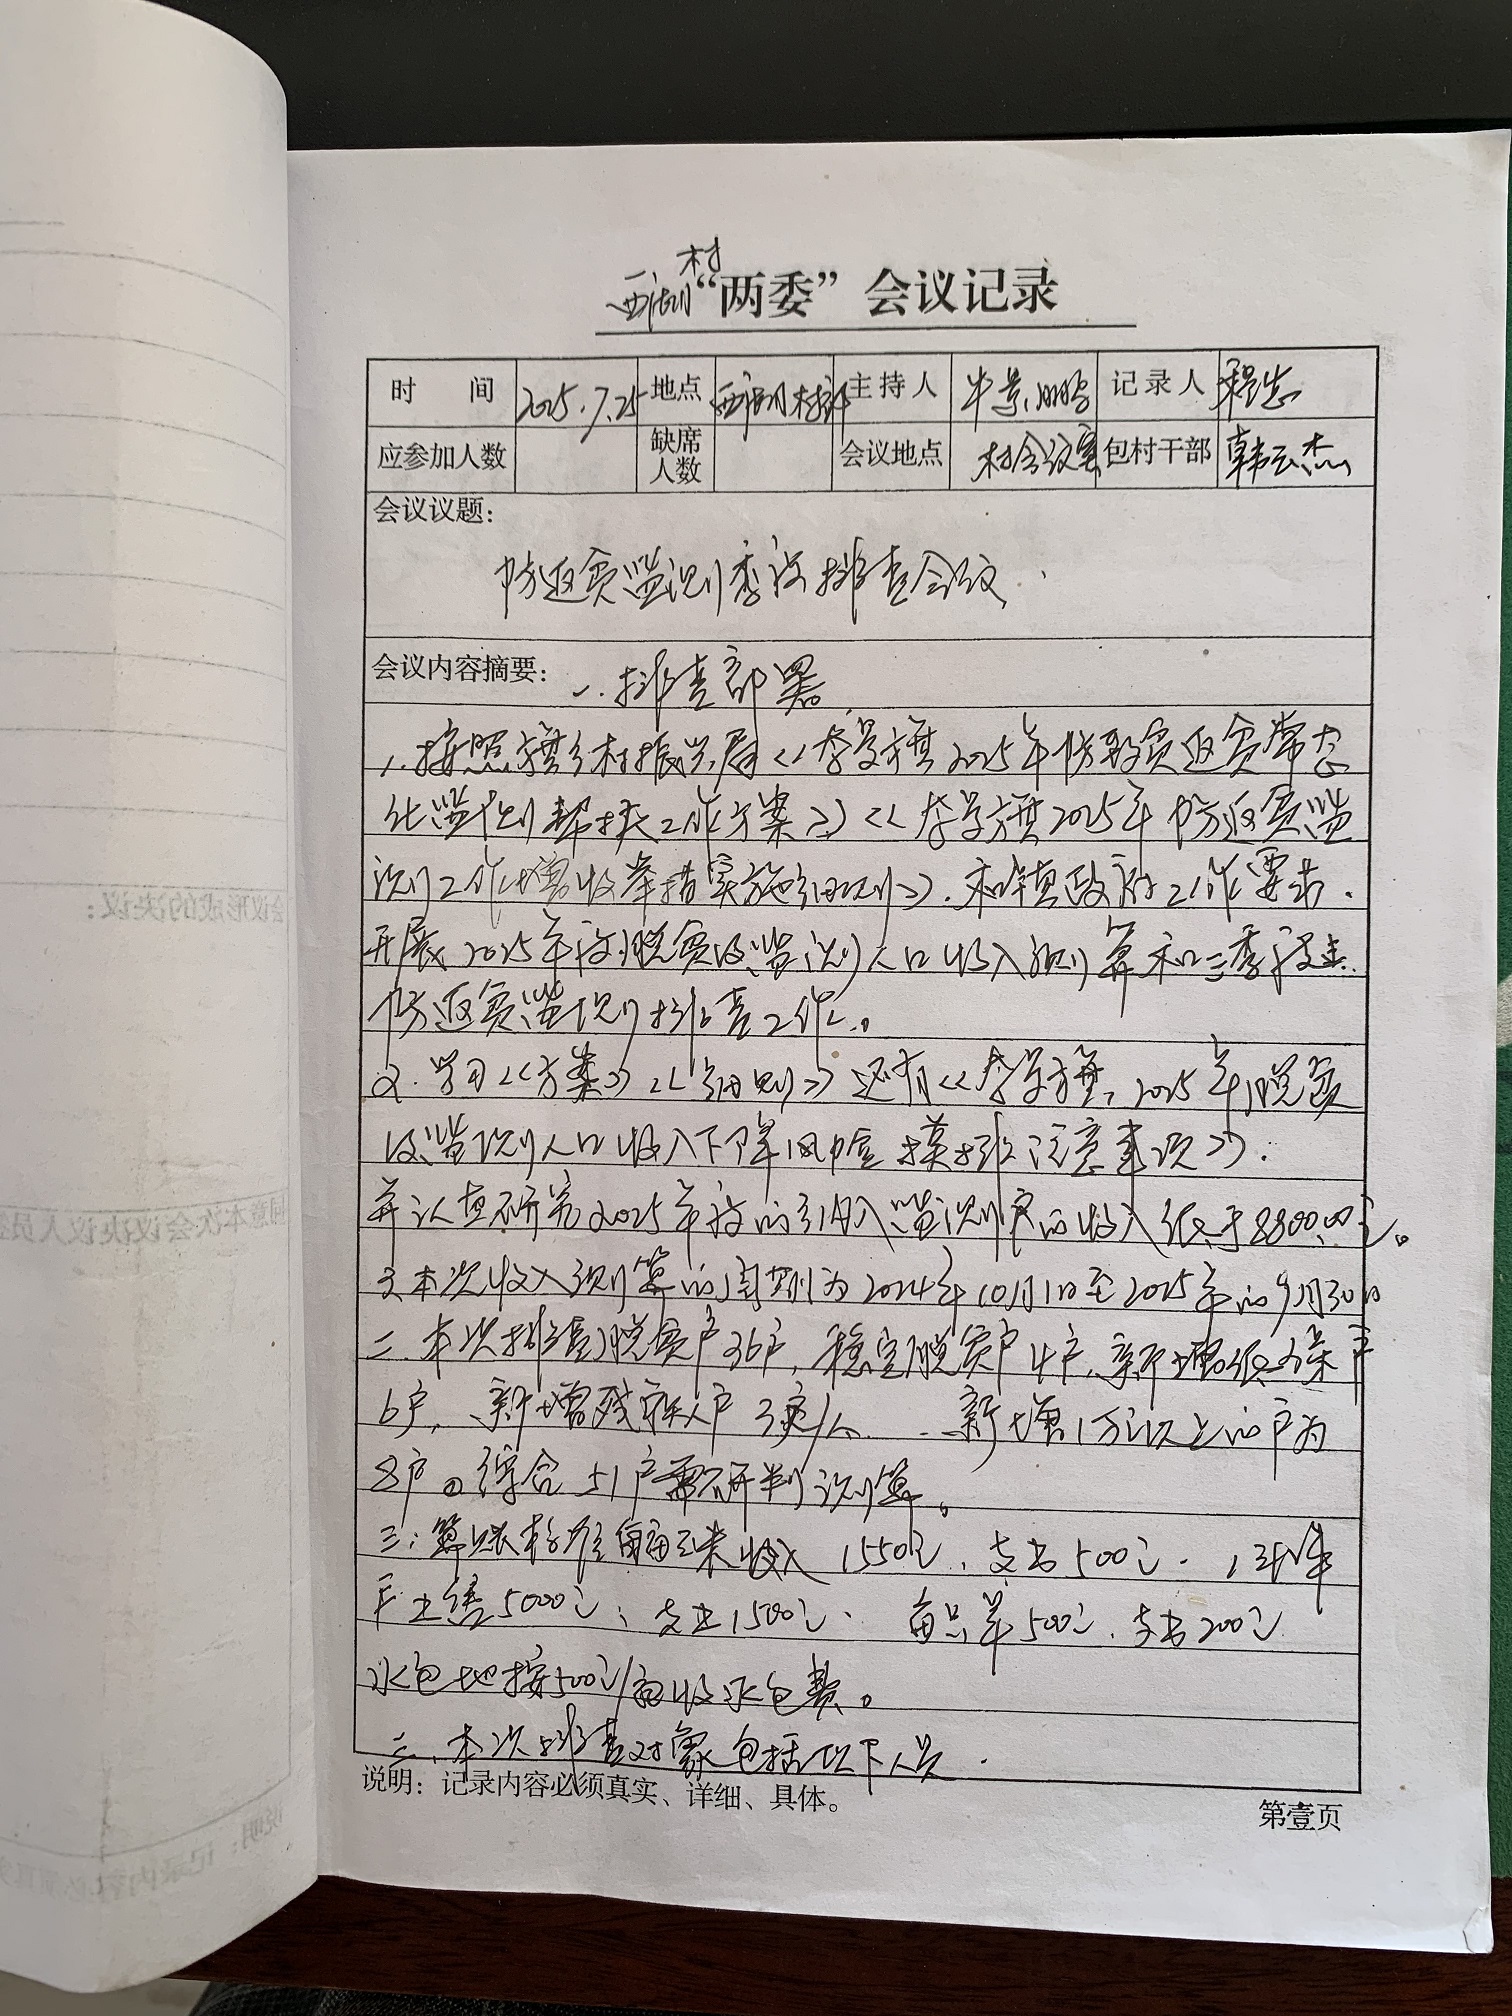 西湖村“两委”会议记录
时 间 2025.7.25 地点 西湖村部 主持人 牛景鹏 记录人 程志
应参加人数 缺席人数 会议地点 村会议室 包村干部 韩云杰
会议议题：
防返贫监测季度排查会议.
会议内容摘要： 一.排查部署
1.按照旗乡村振兴局《 旗2025年防致贫返贫常态
化监测帮扶工作方案》《 旗2025年防返贫监
测工作增收举措实施细则》.和镇政府工作要求.
开展2025年度脱贫及监测人口收入测算和三季度
防返贫监测排查工作。
2.学习《方案》《细则》还有《 旗2025年脱贫
及监测人口收入下降风险摸排注意事项》.
并认真研究2025年度的纳入监测户的收入低于8800.00元。
3本次收入测算的周期为2024年10月1日至2025年的9月30日
二.本次排查脱贫户36户,稳定脱贫户4户,新增低保户
6户, 新增残疾人户 新增1万元以上的户为
8户。综合51户需研判测算。
三:算账标准每亩玉米收入1550元、支出500元.
5000元、支出1500元. 每只羊500元、支出200元
承包地按500元/亩收承包费。
三、本次排查对象包括以下人员.
说明：记录内容必须真实、详细、具体。
第壹页
会议形成的决议：